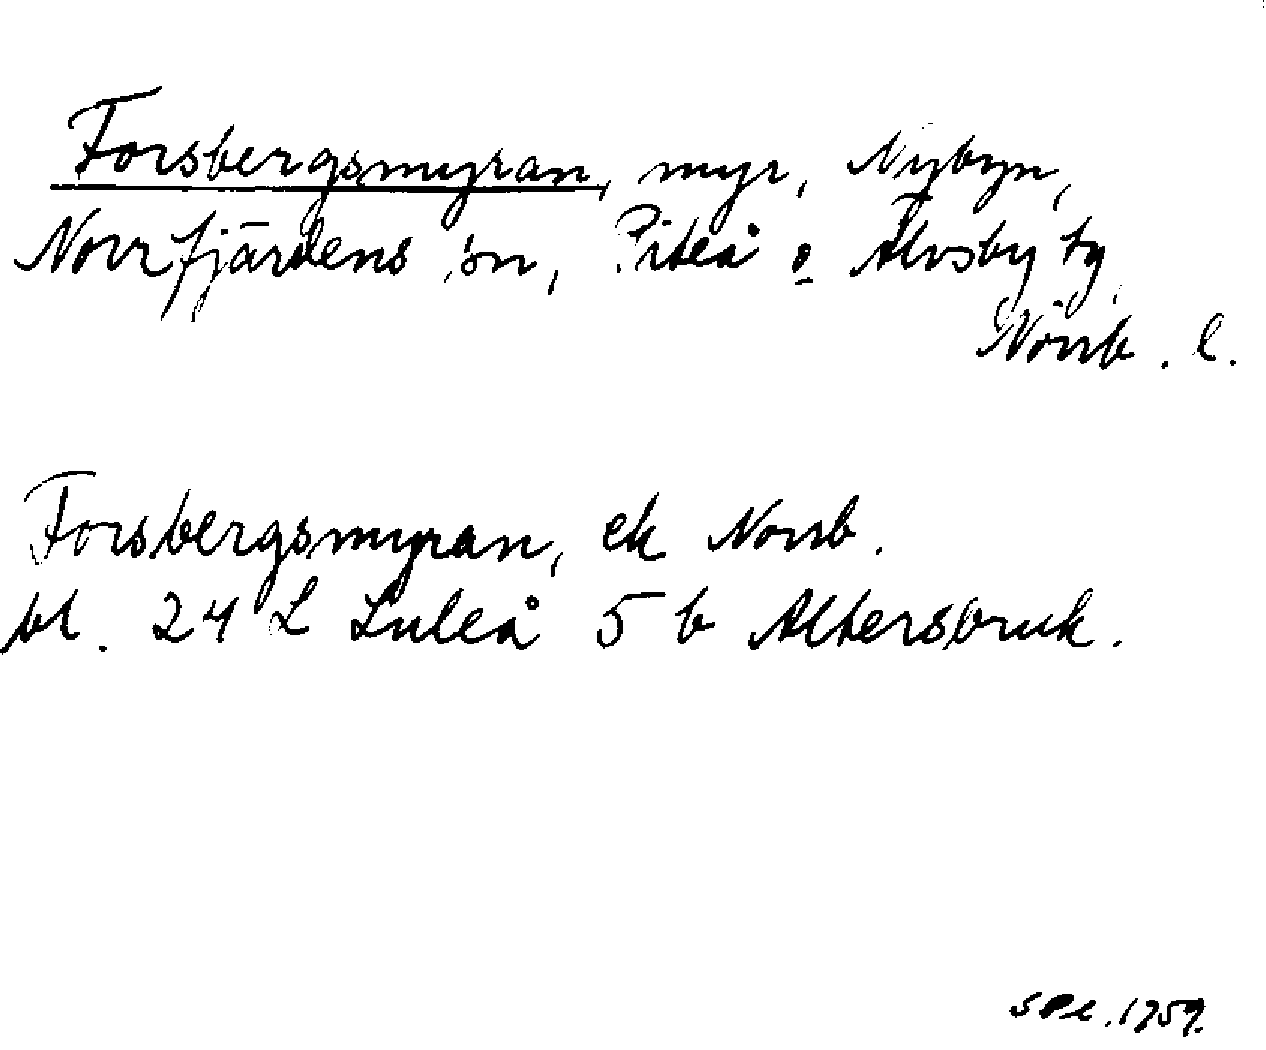 Forsbergsmyran, myr, Nybyn,
Norrfjärdens sn, Piteå o Älvsby tg,
Norrb. l.
Forsbergsmyran, ek Norrb.
bl. 24 L Luleå 5 b Altersbruk.
SPL. 1959.